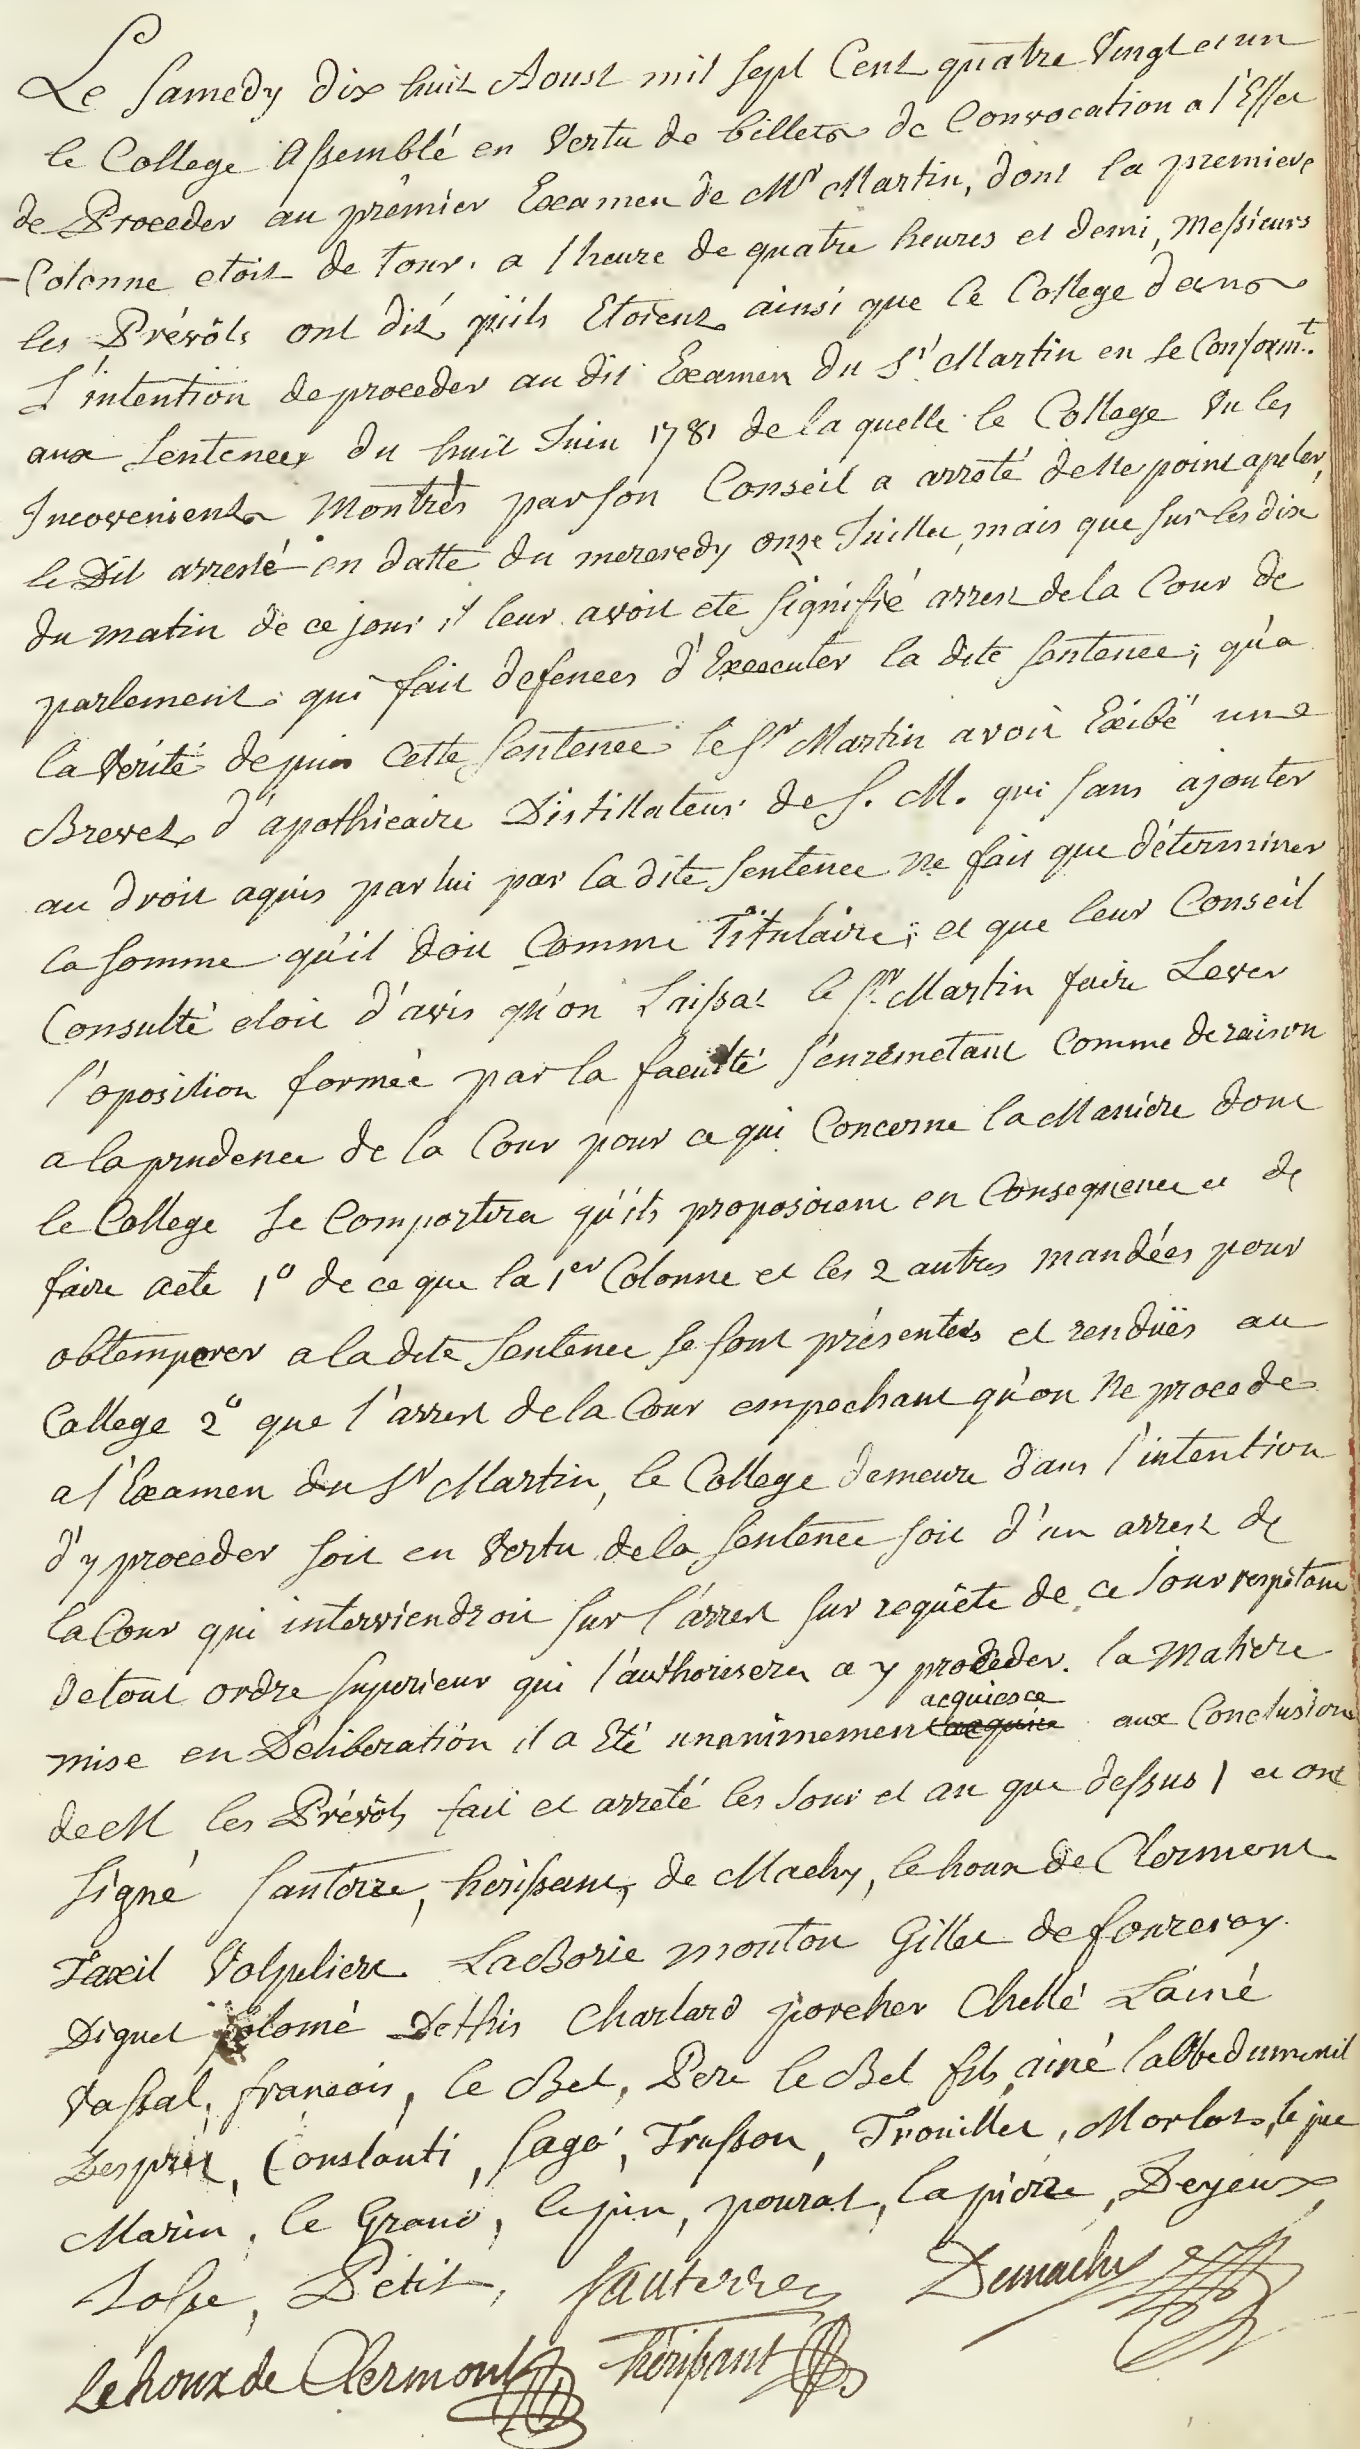 Le Samedy dix huit Aoust mil sept Cent quatre Vingt et un
le College assemblé en Vertu de billets de Convocation a l'Effet
de Proceder au prémier Examen de Mr Martin, dont la premiere
Colonne etoit de tour. a l'heure de quatre heures et demi, Messieurs
les Prévôts ont dit qu'ils Etoient ainsi que le College dans
L'intention de proceder au dit Examen du Sr Martin en se Conformt.
aux Sentences du huit Juin 1781 de la quelle le College Vu les
Incovenients Montrés par son Conseil a arrété delle point apeler,
le Dit arresté en datte du mercredy onze Juillet, mais que sur les dix
du matin de ce jour il leur avoit eté signifié arrest de la Cour de
parlement qui fait defences d'Executer la dite sentence; qu'a
la Verité depuis Cette Sentence le Sr Martin avoit Exibé une
Brevet d'apothicaire Distillateur de S. M. qui sans ajouter
au droit aquis par lui par la dite Sentence ne fait que déterminer
la somme qu'il doit Comme Titulaire; et que leur Conseil
Consulté etoit d'avis qu'on Laissat le Sr Martin faire Lever
l'oposition formée par la faculté s'enremetant Comme de raison
a la prudence de la Cour pour ce qui Concerne la Maniere dont
le College se Comportera qu'ils proposoient en Consequence de
faire acte 1° de ce que la 1er Colonne et les 2 autres mandées pour
obtemperer a la dite Sentence se sont présentés et rendües au
College 2° que l'arrest de la Cour empechant qu'on Ne procede
a l'Examen du Sr Martin, le College demeure dans l'intention
d'y proceder soit en Vertu de la Sentence soit d'un arrest de
la Cour qui interviendroit sur l'arrest sur requête de ce Jour respétant
de tout ordre superieur qui l'authorisera a y proceder. la Matiere
mise en Déliberation il a Eté unanimement acquiesce aux Conclusions
de M les Prévôts fait et arreté les Jour et an que dessus / et ont
Signé Santerre, hérissant, de Machy, le houx de Clermont
Taxil Volpeliere LaBorie mouton Gillet de fourcroy
Diguet Solomé Dethis Charlard porcher Chellé Lainé
Vassal, francois, le Bel, Pere le Bel fils ainé labbé dumenil
Desprez, Constanti, Sagé, Trusson, Trouillet, Morlot, le jue
Marin, le Grand, lejun, pourat, lapierre, Deyeux,
Josse, Petit, Santerre Demachy
Lehoux de Clermont hérissant